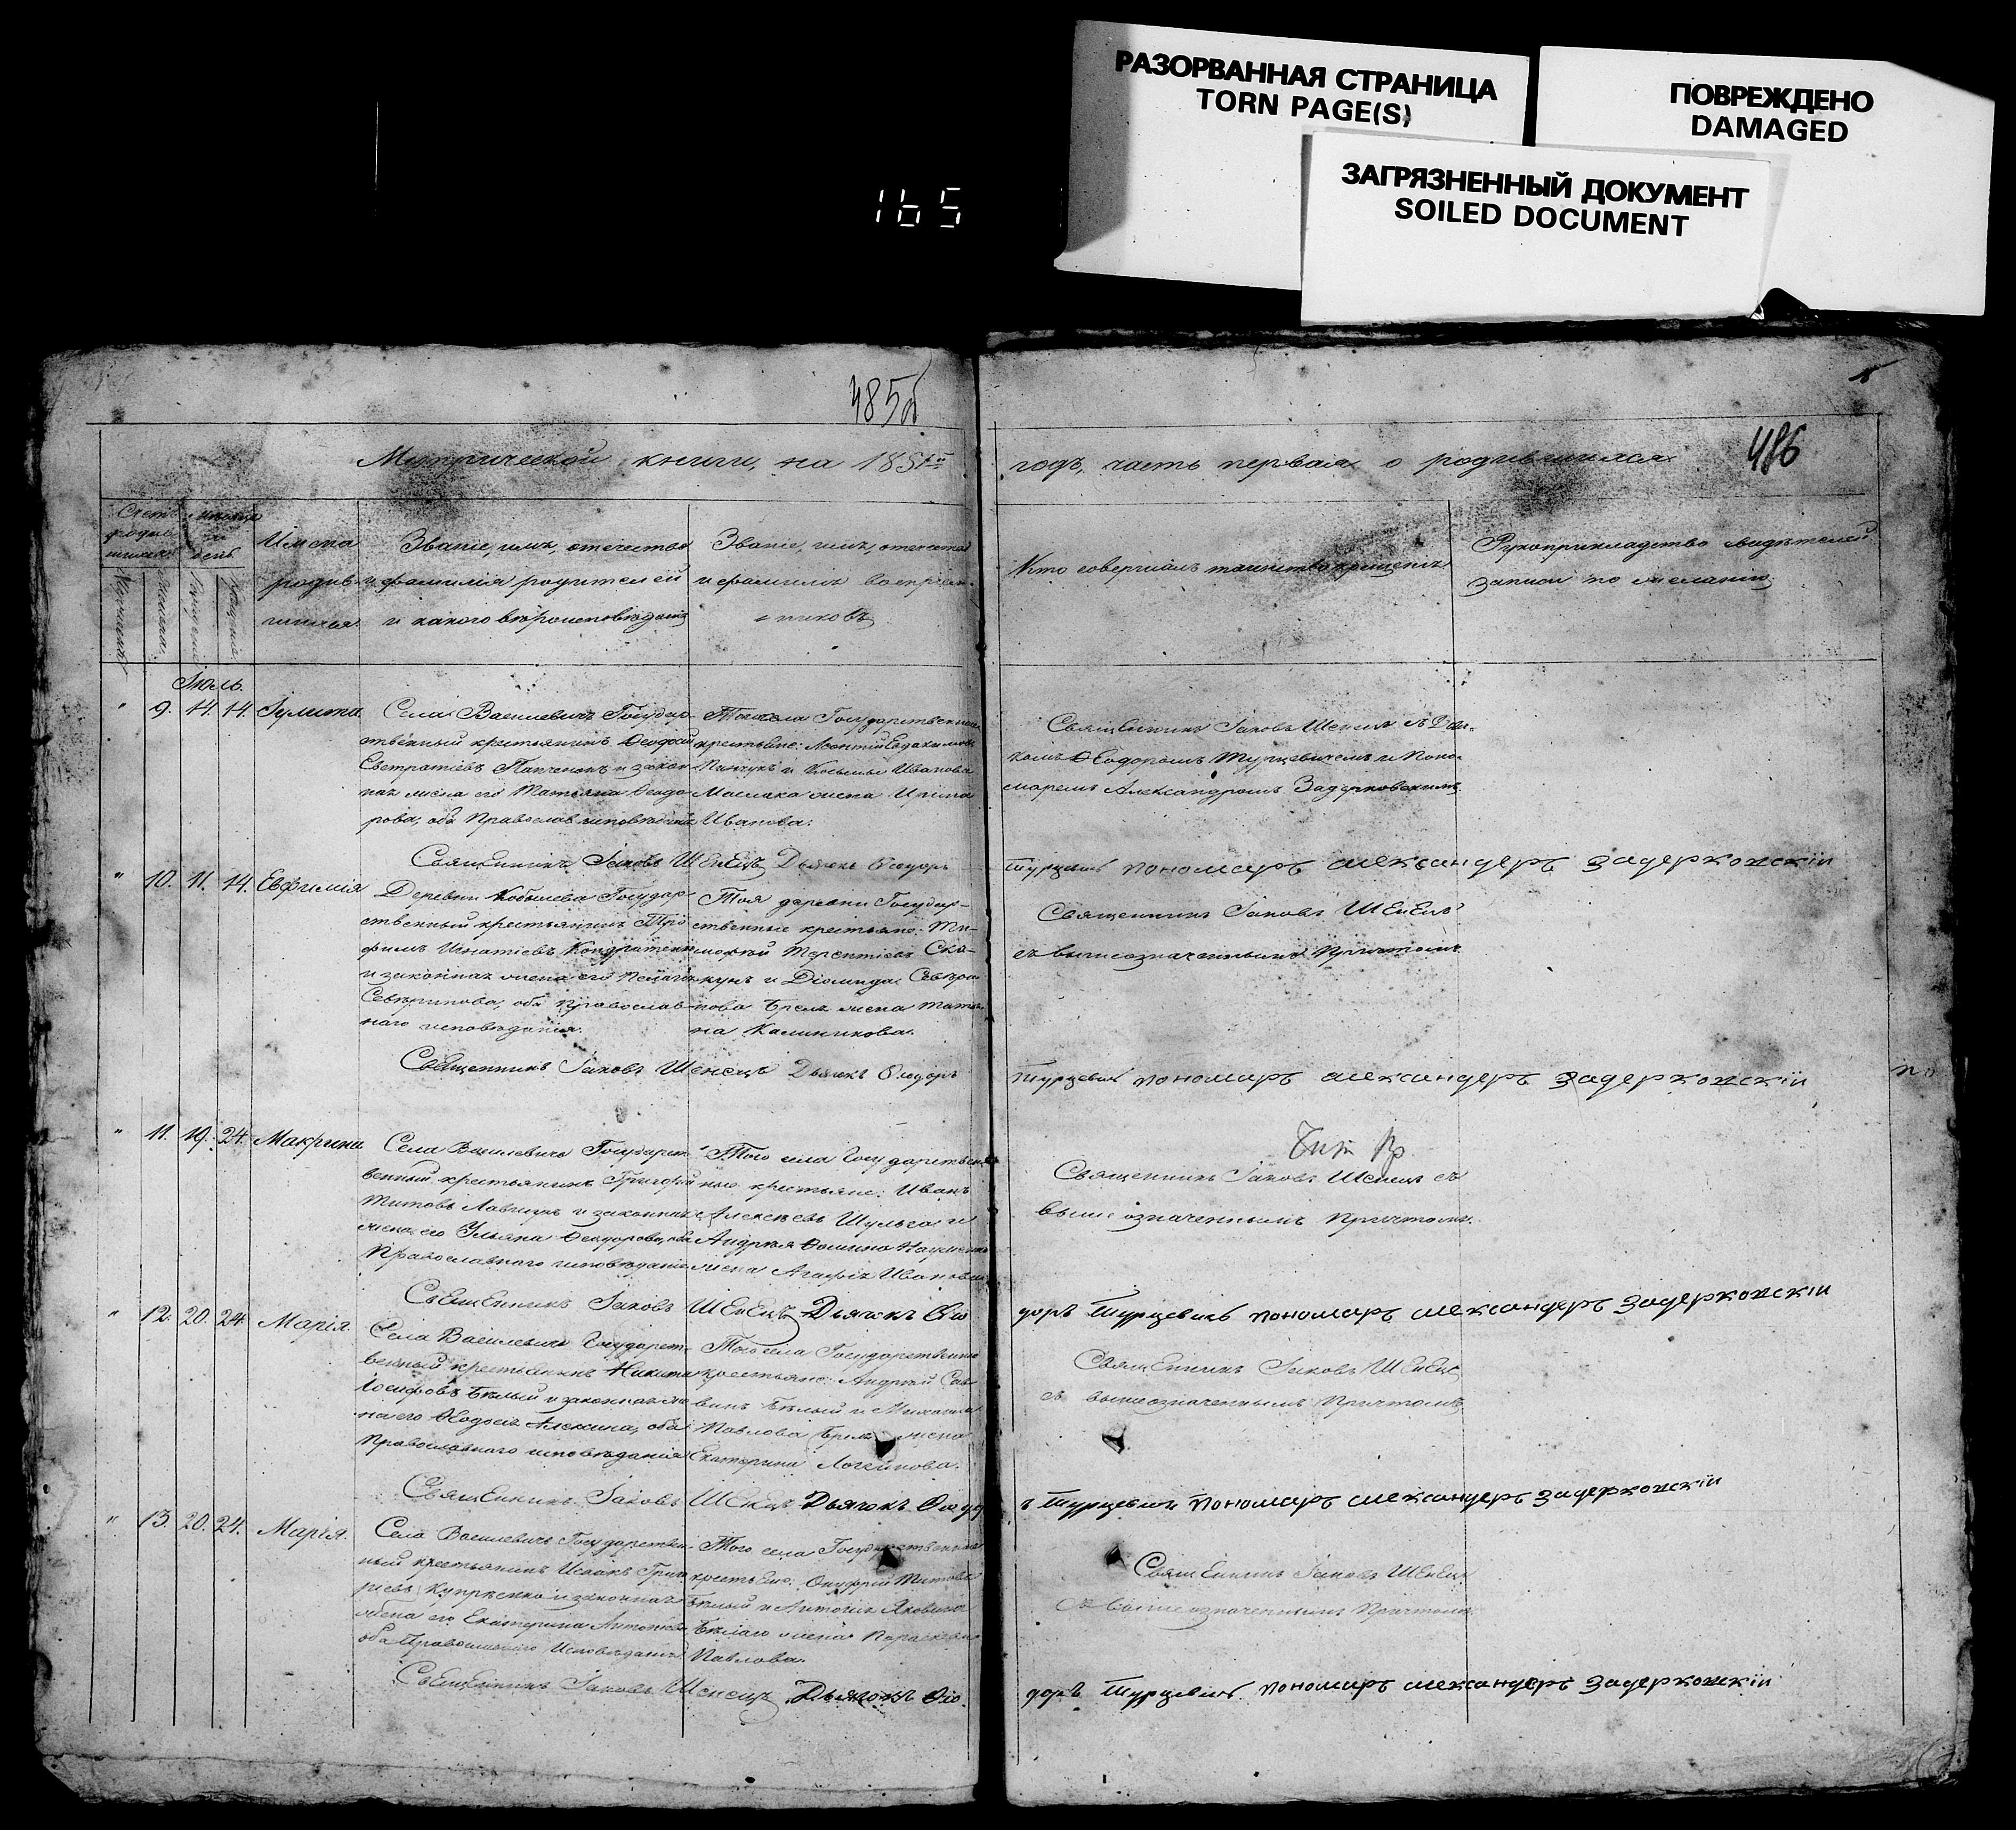 РАЗОРВАННАЯ СТРАНИЦА
TORN PAGE(S)
ПОВРЕЖДЕНО
DAMAGED
ЗАГРЯЗНЕННЫЙ ДОКУМЕНТ
SOILED DOCUMENT
165
485об
Метрической книги, на 1851й
годъ, часть первая о родившихся.
486
Имена
родив-
шихся.
Званіе, имя, отечество
и фамилія родителей
и какого вѣроисповѣданія
Званіе, имя, отечество
и фамилія воспріем-
никовъ
Кто совершалъ таинство крещенія
Рукоприкладство свидѣтелей
записи по желанію.
Іюль.
" 9. 14. 14. Іулита.
Села Василевичъ Государ-
ственный крестьянинъ Ѳеодосій
и закон-
ная жена его Татьяна Ѳеодо-
рова, оба Православ. исповѣданія
Того села Государственные
крестьяне: Леонтій Евдокимовъ
Пинчукъ и Козьмы Иванова
Маслака жена Ирина
Иванова.
Священникъ Іаковъ Шенецъ съ Дья-
комъ Ѳеодоромъ Турцевичемъ и Поно-
маремъ Александромъ Задерковскимъ
Священникъ Іаковъ Шенецъ Дьячекъ Ѳеодоръ
Турцевичъ пономаръ александеръ задерковскій
" 10. 11. 14. Евфимія
Деревни Кобылева Государ-
ственный крестьянинъ Тро-
фимъ Игнатіевъ Кондратенко
и законная жена его
Севѣринова, оба православ-
наго исповѣданія.
Тоя деревни Государ-
ственные крестьяне: Ти-
мофей Терентіевъ Ска-
кунъ и Діомида Севѣри-
нова Брель жена Татья-
на Калиникова.
Священникъ Іаковъ Шенецъ
съ вышеозначеннымъ Причтомъ
Священникъ Іаковъ Шенецъ Дьячекъ Ѳеодоръ
Турцевичъ пономаръ александеръ задерковскій
" 11. 19. 24. Макрина
Села Василевичъ Государст-
венный крестьянинъ Григорій
Титовъ и законная
жена его Ульяна Ѳеодорова, оба
Православнаго исповѣданія
Того села Государствен-
ные крестьяне: Иванъ
Алексѣевъ Шульга и
Андрея Ѳомина Науменка
жена Агафія Иванова
Священникъ Іаковъ Шенецъ съ
выше означеннымъ Причтомъ.
Священникъ Іаковъ Шенецъ Дьячекъ Ѳео
доръ Турцевичъ пономаръ александеръ задерковскій
" 12. 20. 24. Марія.
Села Василевичъ Государст-
венный крестьянинъ Никита
Іосифовъ Бѣлый и законная же-
на его Ѳеодосія Алексина, оба
Православнаго исповѣданія
Того села Государственные
крестьяне: Андрей Сав-
винъ Бѣлый и Михаила
Павлова Брель жена
Екатерина Логвинова.
Священникъ Іаковъ Шенецъ
съ вышеозначеннымъ Причтомъ
Священникъ Іаковъ Шенецъ Дьячокъ Ѳеодор
ъ Турцевичъ пономаръ александеръ задерковскій
" 13. 20. 24. Марія.
Села Василевичъ Государствен-
ный крестьянинъ Исаакъ Григо-
рьевъ Купрѣенко и законная
жена его Екатерина Антонова
оба Православнаго Исповѣданія
Того села Государственные
крестьяне: Онуфрій Титовъ
Бѣлый и Антонія Яковлева
Бѣлаго жена Параскева
Павлова.
Священникъ Іаковъ Шенецъ
съ выше означеннымъ Причтомъ
Священникъ Іаковъ Шенецъ Дьячокъ Ѳео
доръ Турцевичъ. пономаръ александеръ задерковскій